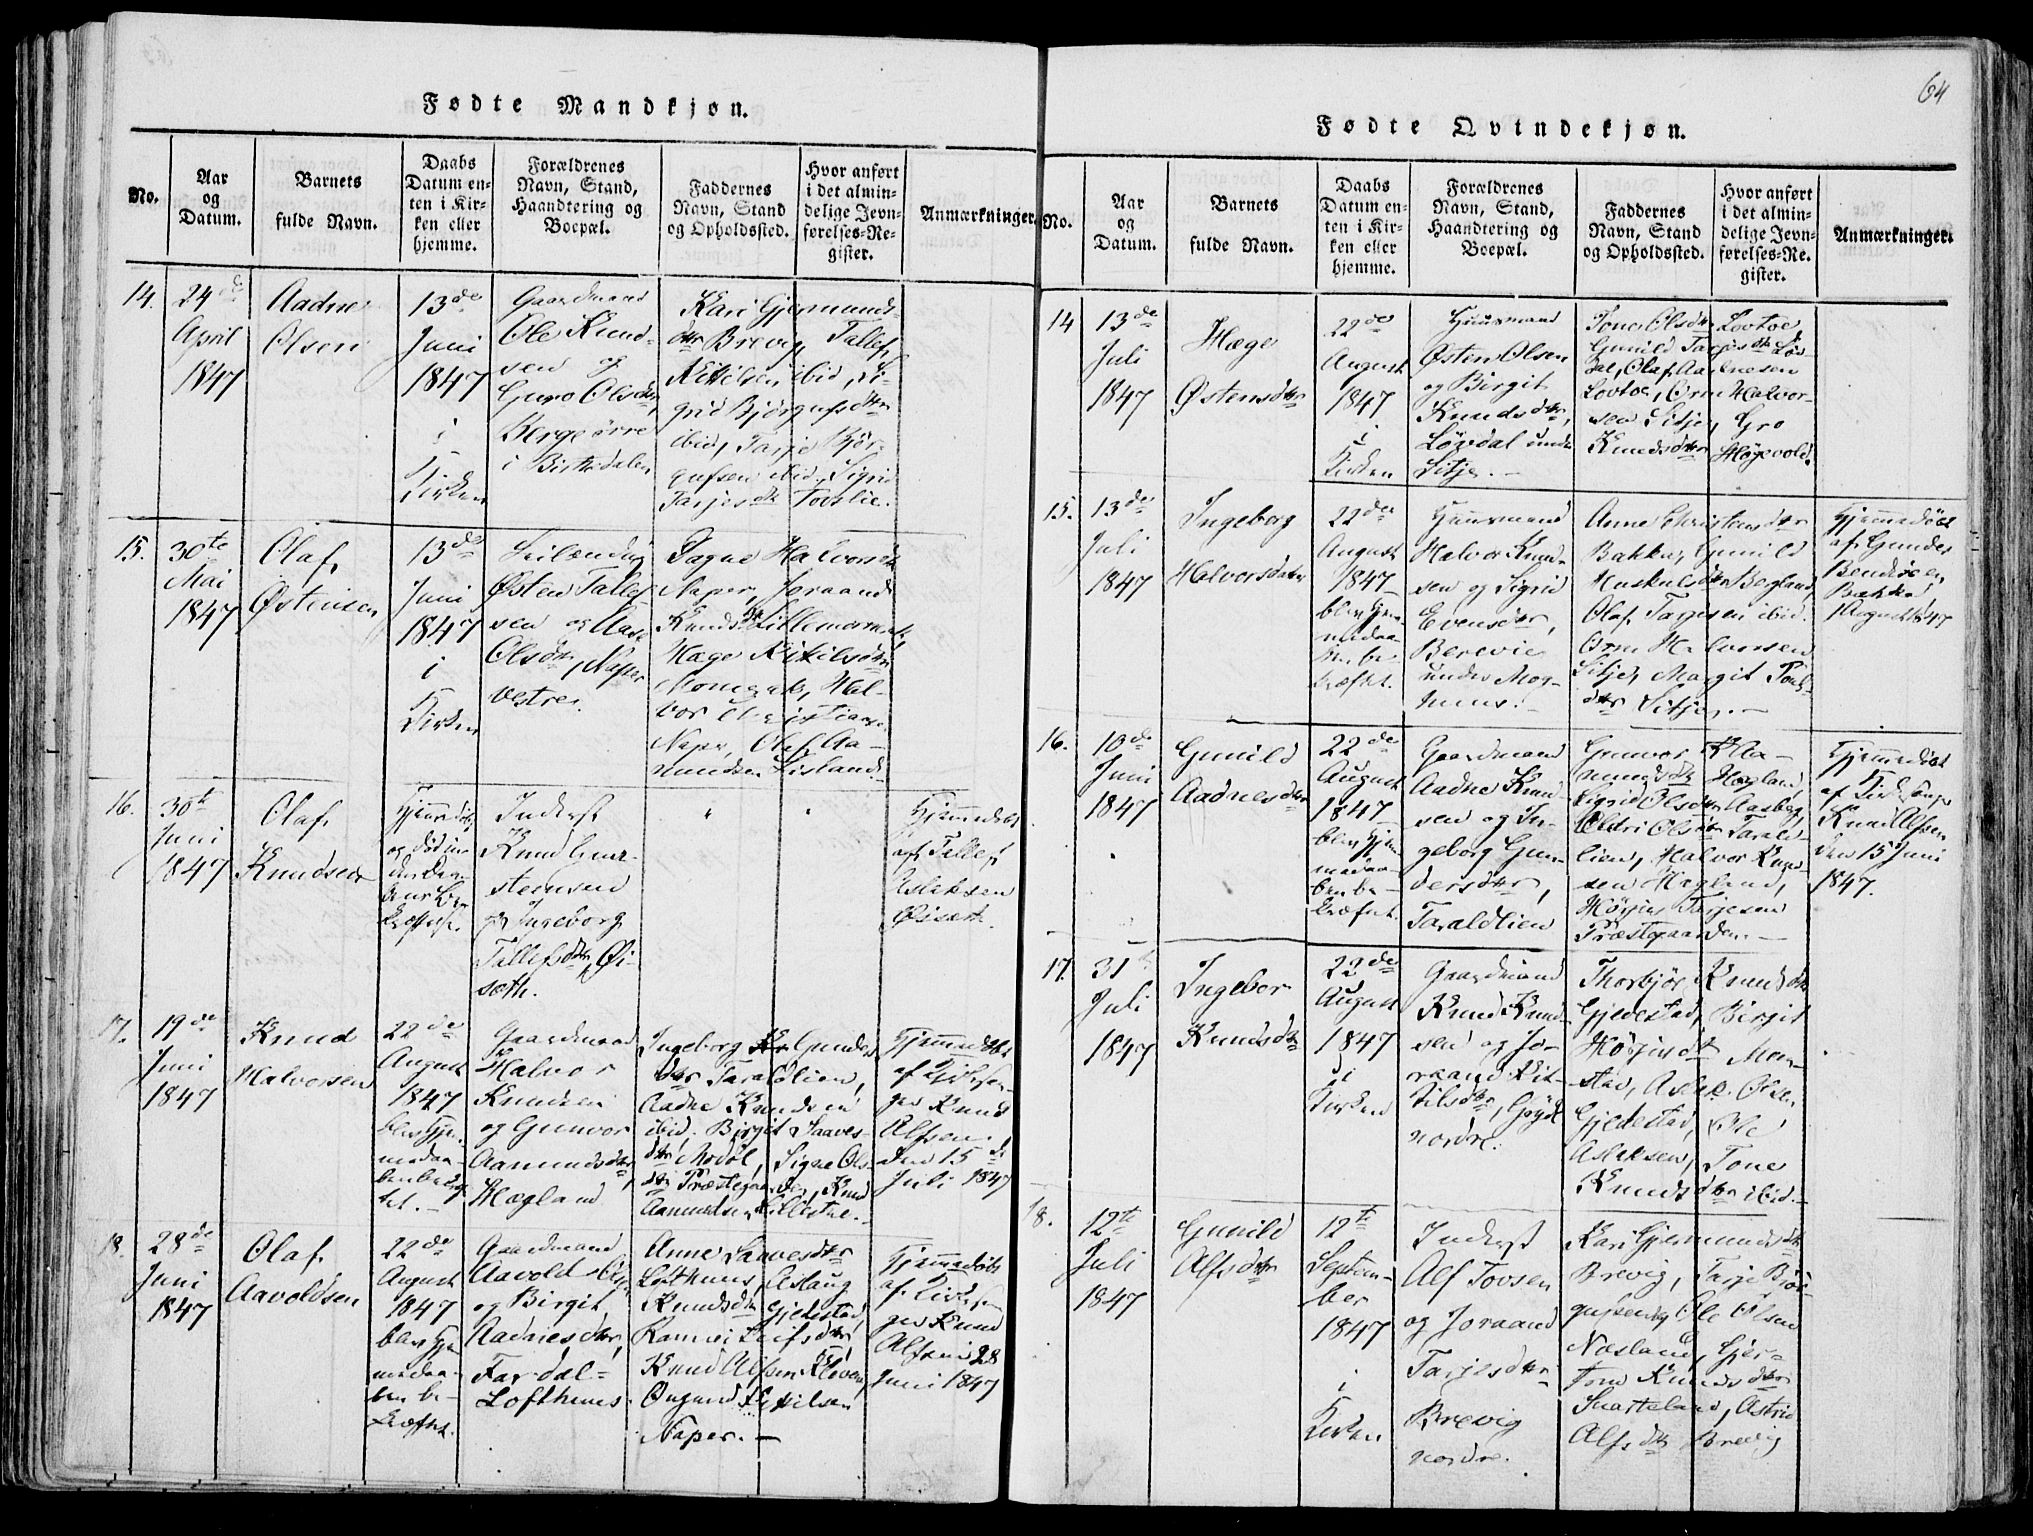 64
Fødte Mandkjøn.
No.
Aar
og
Datum.
Barnets
fulde Navn.
Daabs
Datum en-
ten i Kir-
ken eller
hjemme.
Forældrenes
Navn, Stand,
Haandtering og
Boepæl.
Faddernes
Navn, Stand
og Opholdssted.
Hvor anført
i det almin-
delige Jevn-
førelses-Re-
gister.
Anmærkninger.
14.
24de
April
1847
Aadne
Olsen
13de
Juni
1847
i
Kirken
Gaardmand
Ole Knud-
sen og
Guro Olsdtr
Berge örre
i
Kari Gjermunds-
dtr Brevig, Tallef
Kittilsen ibid, Si-
grid Bjørgufsdtr
ibid, Tarje Bjør-
gufsen ibid, Sigrid
Tarjesdtr Tovslie.
15.
30te
Mai
1847
Olaf
Østensen
13de
Juni
1847
i
Kirken
Østen Tallef-
sen og Aase
Olsdtr, Naper
vestre.
Halvorsdtr
Naper, Joraand
Knudsdtr
Hæge Kittilsdtr
Hal-
vor Christians.
Naper, Olaf Aa-
mundsen Lisland.
16.
30te
Juni
1847
Olaf
Knudsen
Hjemmedøbt
og død
Inderst
Knud Gun-
stensen
og Ingeborg
Tallefsdtr Øi-
sæth.
Hjemmedøbt
af Tallef
Aslaksen
Øisæth.
17.
19de
Juni
1847
Knud
Halvorsen
22de
August
1847
blev Hjem-
medaa-
ben bekræf-
tet.
Gaardmand
Halvor
Knudsen
og Gunvor
Aamundsdtr,
Hægland
Ingeborg Gunders
dtr Taraldlien,
Aadne Knudsen
ibid. Birgit Saaves-
dtr Modøl, Signe Ols-
dtr Præstegaarden, Knud
Aamundsen Lillestue.
Hjemmedøbt
af Kirkesan-
ger Knud
Alfsen
den 15de
Juli 1847
18.
28de
Juni
1847
Olaf
Aavoldsen
22de
August
1847
blev Hjem-
medaa-
ben be-
kræftet.
Gaardmand
Aavold Olsen
og Birgit
Aadnesdtr,
Fardal-
Lofthuus
Anne Saavesdtr
Lofthuus, Aslaug
Knudsdtr Gjedestad,
Leifsdtr
Knud Alfsen Kleven,
Kittilsen
Naper.
Hjemmedøbt
af Kirkesan-
ger Knud
Alfsen 28
Juni 1847
Fødte Qvindekjøn.
No.
Aar
og
Datum.
Barnets
fulde Navn.
Daabs
Datum en-
ten i Kir-
ken eller
hjemme.
Forældrenes
Navn, Stand,
Haandtering og
Boepæl.
Faddernes
Navn, Stand
og Opholdssted.
Hvor anført
i det almin-
delige Jevn-
førelses-Re-
gister.
Anmærkninger.
14
13de
Juli
1847
Hæge
Østensdtr
22de
August
1847
i
Kirken
Huusmand
Østen Olsen
og Birgit
Knudsdtr,
Løvdal under
Sitje.
Tone Olsdtr Lovtoe,
Gunild Tarjesdtr Løv-
dal, Olaf Aadnesen
Lovtoe, Orm Halvor-
sen Sitje, Gro
Knudsdtr Høgevold.
15.
13de
Juli
1847
Ingeborg
Halvorsdatter
22de
August
1847
blev Hjem-
medaa-
ben be-
kræftet.
Huusmand
Halvor Knud-
sen og Sigrid
Evensdtr,
Berevie
under Mog-
huus.
Anne Christensdtr
Bakka, Gunild
Huskulsdtr Bergland,
Olaf Tarjesen ibid.
Orm Halvorsen
Sitje, Margit Pouls-
dtr Sitje.
Hjemmedøbt
af Gunder
Bendixen
Bakka
August 1847
16.
10de
Juni
1847
Gunild
Aadnesdtr
22de
August
1847
blev Hjem-
medaa-
ben be-
kræftet.
Gaardmand
Aadne Knud-
sen og In-
geborg Gun-
dersdtr,
Taraldlien
Gunvor Aa-
mundsdtr Hægland,
Sigrid Olsdtr Aasberg,
Eldri Olsdtr Tarald-
lien, Halvor Knud-
sen Hægland,
Høljes Tarjesen
Præstgaarden.
Hjemmedøbt
af Kirkesanger
Knud Alfsen
den 15 Juni
1847.
17.
31te
Juli
1847
Ingebor
Knudsdtr
22de
August
1847
i
Kirken
Gaardmand
Knud Knud-
sen og Jo-
raand Kit-
tilsdtr, Gryte
nordre.
Thorbjør Knudsdtr
Gjedestad, Birgit
Høljesdtr Mou-
stad, Aslak Olsen
Gjedestad, Ole
Aslaksen, Tone
Knudsdtr ibid.
18.
12te
Juli
1847
Gunild
Alfsdtr
12te
Septem-
ber
1847
i
Kirken
Inderst
Alf Tovsen
og Joraand
Tarjesdtr
Brevig
nordre.
Kari Gjermundsdtr
Brevig, Tarje Bjør-
gufsen, Ole Olsen
Næsland, Gjer-
Knudsdtr
Snarteland, Astrid
Alfsdtr Brevig